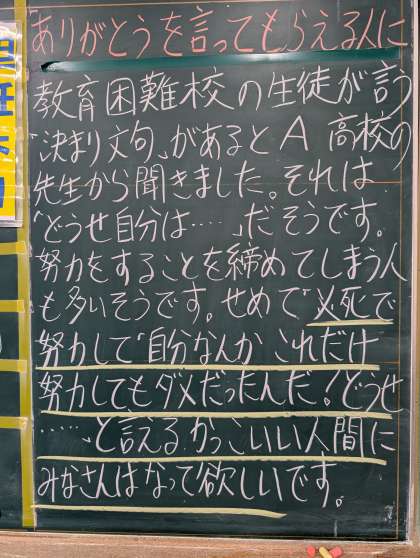 「ありがとうを言ってもらえる人に
教育困難校の生徒が言う
「決まり文句」があるとA高校の
先生から聞きました。それは
「どうせ自分は……」だそうです。
努力をすることを締めてしまう人
も多いそうです。せめて"必死で
努力して「自分なんかこれだけ
努力してもダメだったんだ!どうせ
……」と言えるかっこいい人間に
みなさんはなって欲しいです。